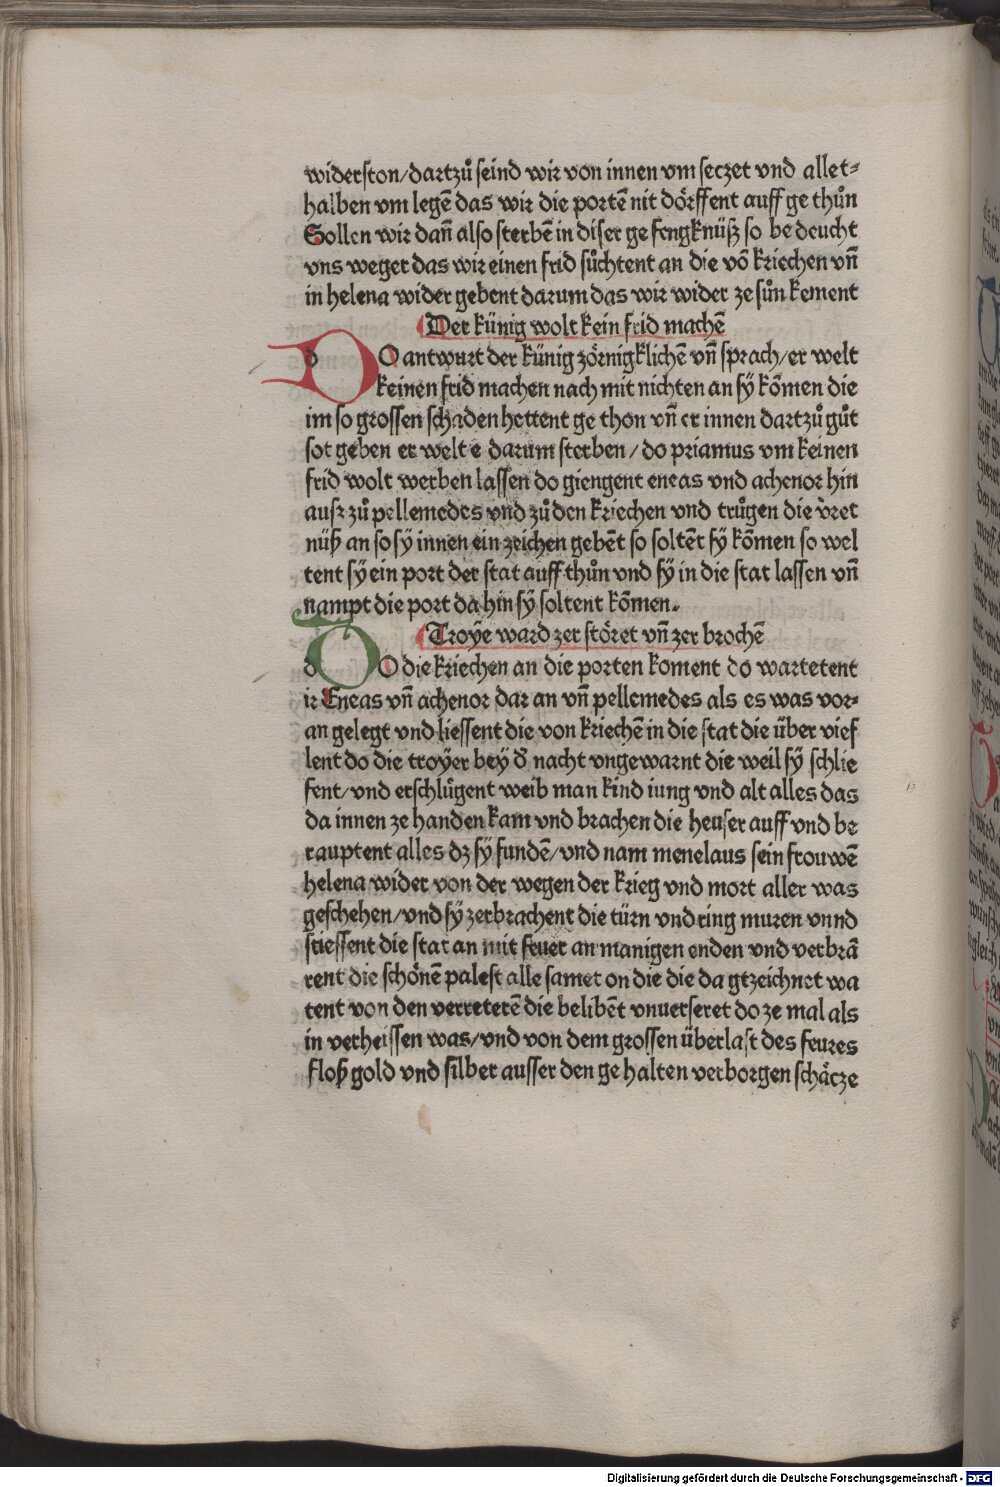 widerston/dartzuͦ seind wir von innen vm seczet vnd allet⸗
halben vm legē das wir die portē nit doͤrffent auff ge thuͦn
Sollen wir dañ also sterbē in diser ge fengknuͤß so be deucht
vns weger das wir einen frid suͦchtent an die vō kriechen vñ
in helena wider gebent darum das wir wider ze suͦn kement
Der kuͤnig wolt kein frid machē
dO antwurt der kuͤnig zoͤrnigklichē vñ sprach/er welt
keinen frid machen nach mit nichten an sÿ kōmen die
im so grossen schaden hettent ge thon vñ er innen dartzuͦ guͦt
sot geben er welt e darum sterben/do priamus vm keinen
frid wolt werben lassen do giengent eneas vnd achenor hin
ausz zuͦ pellemedes vnd zuͦ den kriechen vnd truͦgen die v̄ret
nuͤß an so sÿ innen ein zeichen gebēt so soltēt sÿ kōmen so wel
tent sÿ ein port der stat auff thuͦn vnd sÿ in die stat lassen vñ
nampt die port da hin sÿ soltent kōmen.
Troye ward zer stoͤret vñ zer brochē
dO die kriechen an die porten koment do wartetent
ir Eneas vñ achenor dar an vñ pellemedes als es was vor⸗
an gelegt vnd liessent die von kriechē in die stat die uͤber vief
lent do die troÿer beÿ d̕ nacht vngewarnt die weil sÿ schlie
fent/vnd erschluͦgent weib man kind iung vnd alt alles das
da innen ze handen kam vnd brachen die heuser auff vnd be
rauptent alles dz sÿ fundē/vnd nam menelaus sein frouwē
helena wider von der wegen der krieg vnd mort aller was
geschehen/vnd sÿ zerbrachent die tuͤrn vnd ring muren vnnd
stiessent die stat an mit feuer an manigen enden vnd verbrā
rent die schoͤnē palest alle samet on die die da gtzeichnet wa
tent von den verreterē die belibēt vnuerseret do ze mal als
in verheissen was/vnd von dem grossen uͤberlast des feures
floß gold vnd silber ausser den ge halten verborgen schaͤcze
Digitalisierung gefördert durch die Deutsche Forschungsgemeinschaft - DFG